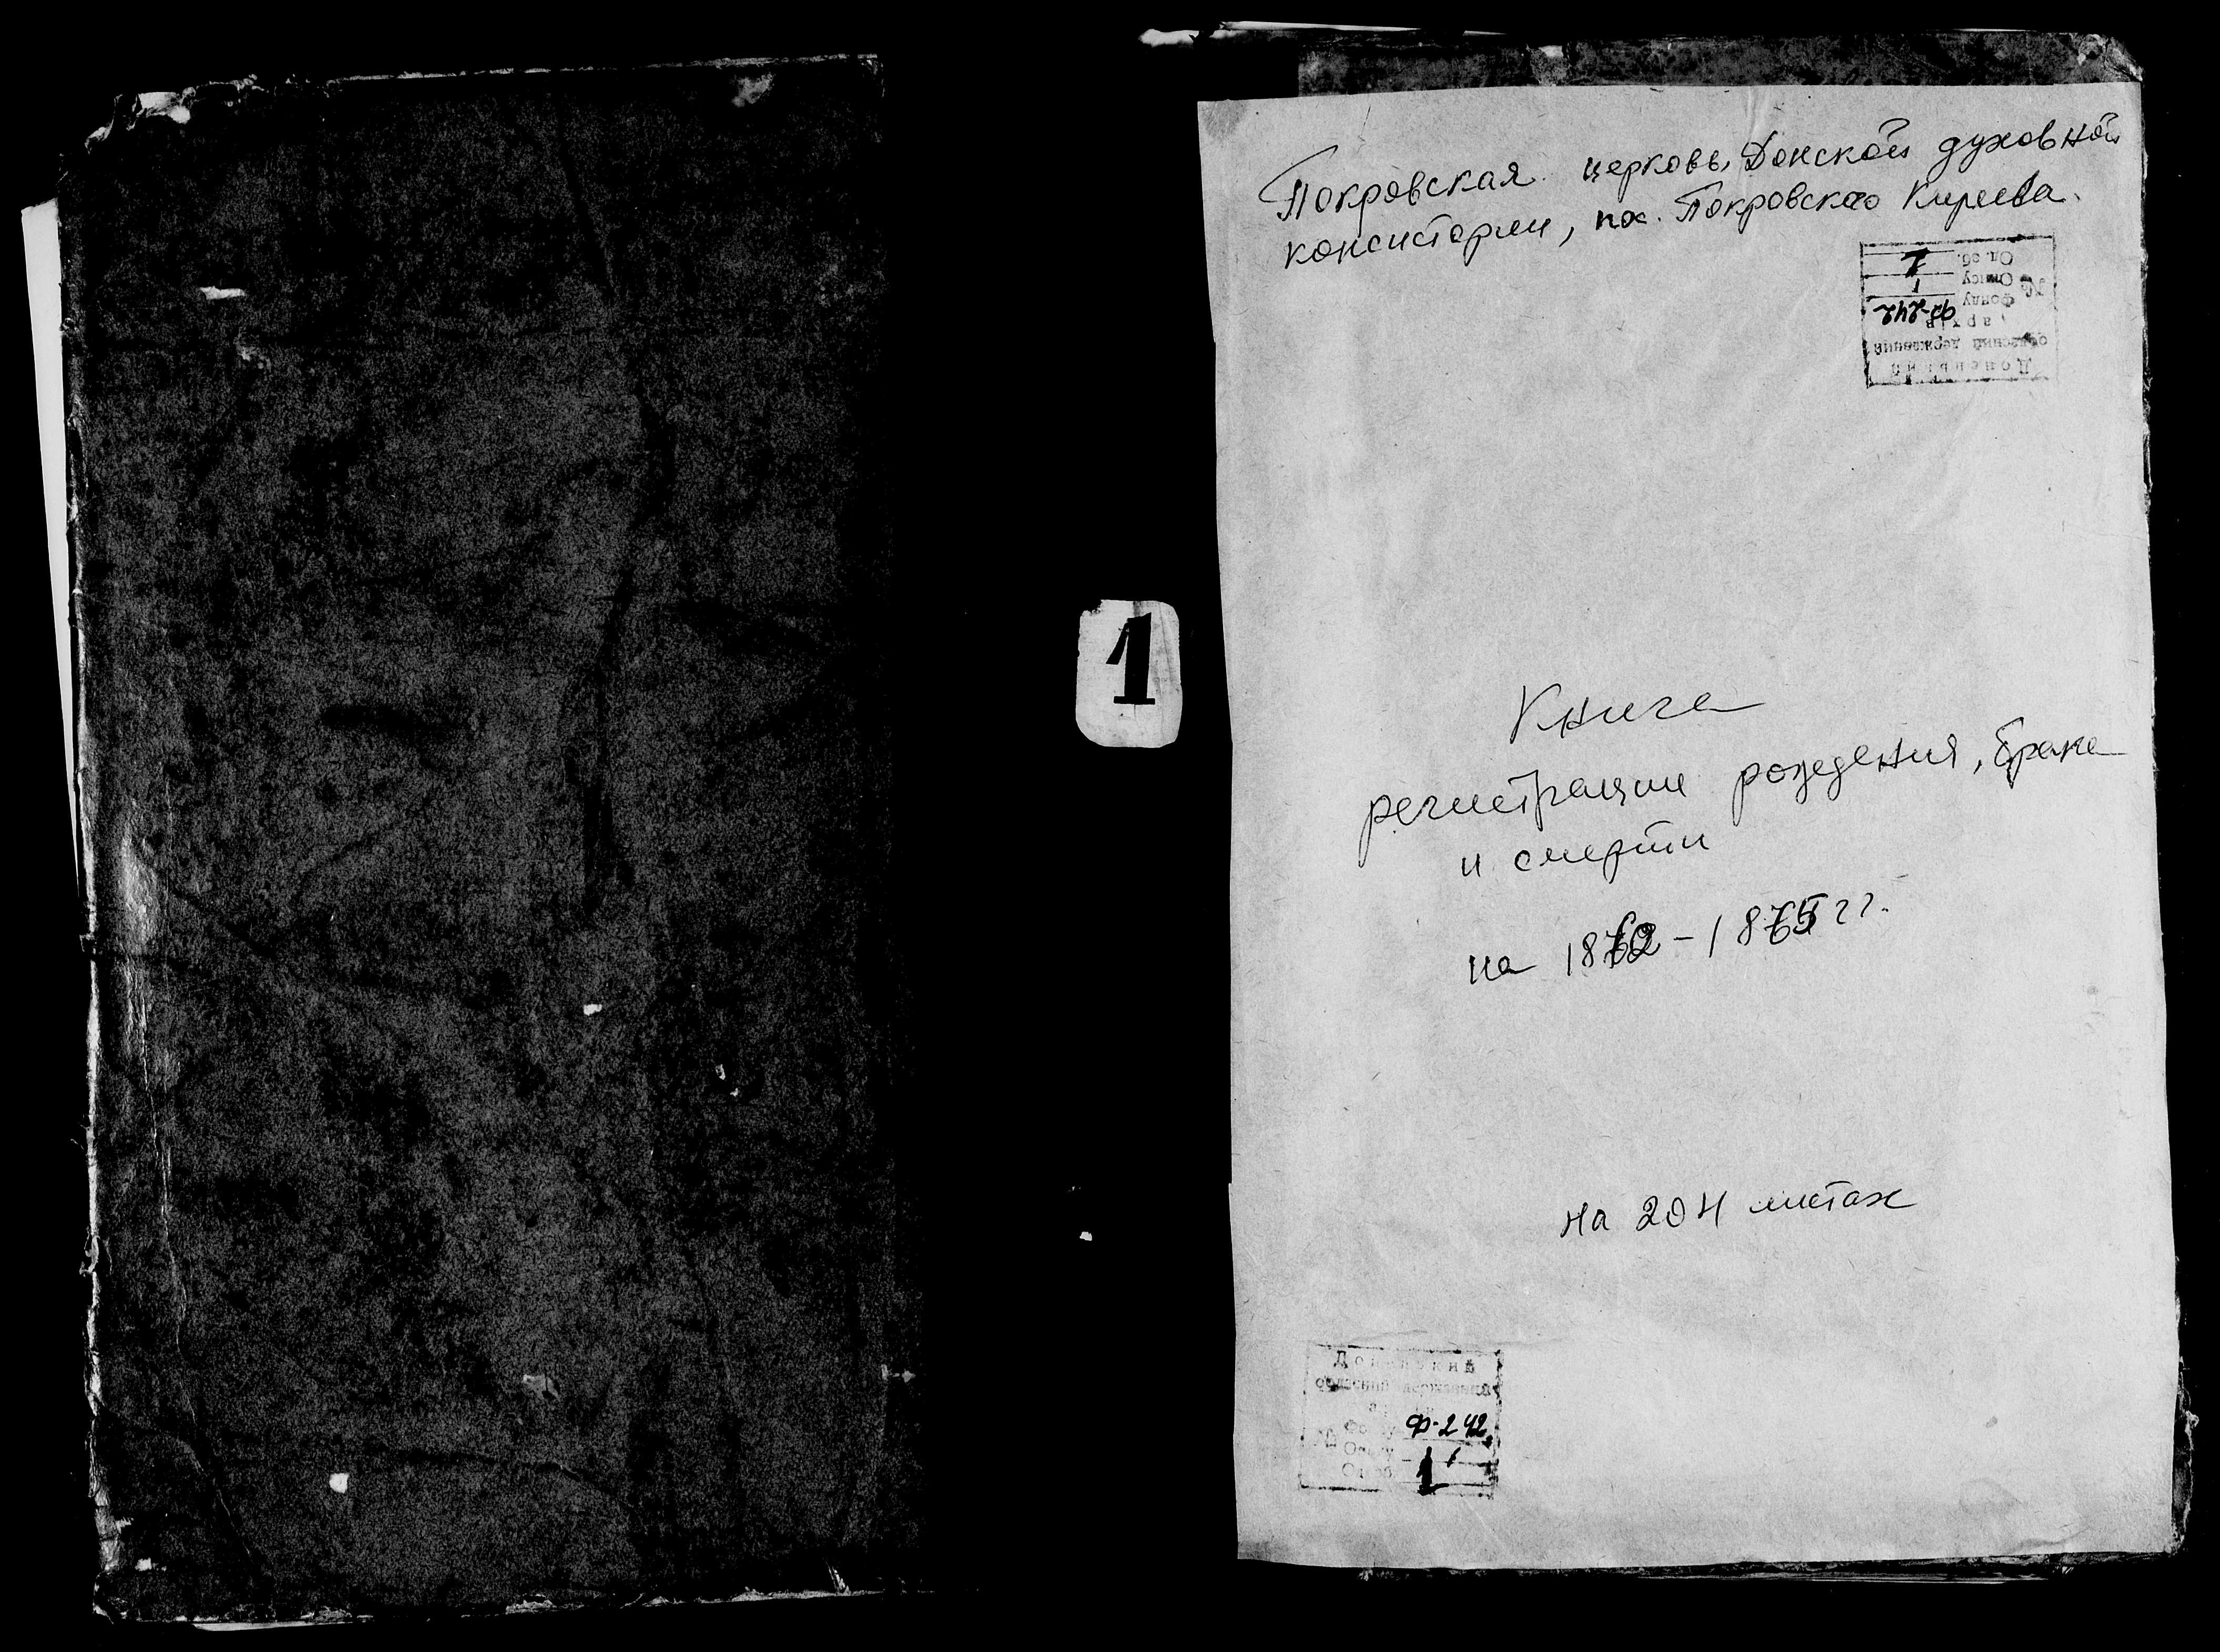 Покровская церковь Донской духовной
консистории, пос. Покровского Киреева.
1
Од. зб.
1
Опису
1
№
Фонду
Ф-242
архів
обласний державний
Донецький
Книга
регистрации рождения, брака
и смерти
на 1862-1865 гг.
на 204 листах
Донецький
обласний державний
Ф-242
Опису
1
Од. зб.
1